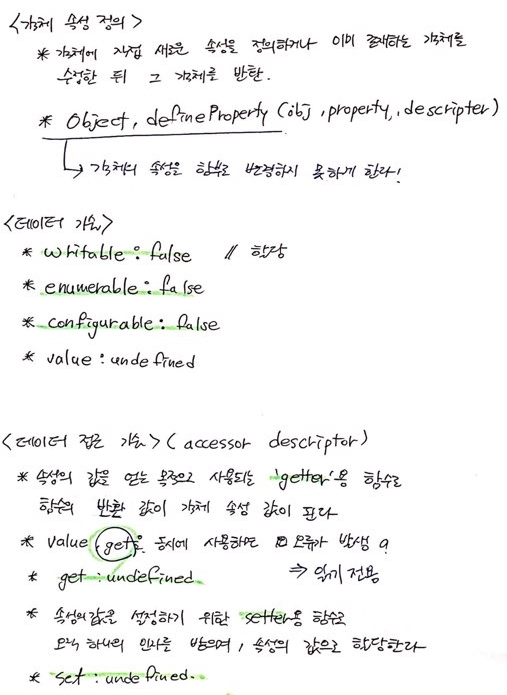 <객체 속성 정의>
* 객체에 직접 새로운 속성을 정의하거나 이미 존재하는 객체를
수정한 뒤 그 객체를 반환.
* Object, defineProperty (obj, property, descripter)
↳ 객체의 속성을 함부로 변경하지 못하게 한다!
<데이터 기술>
* writable : false // 할당
* enumerable : false
* configurable : false
* value : undefined
<데이터 접근 기술> (accessor descriptor)
* 속성의 값을 얻는 목적으로 사용되는 'getter'용 함수로
함수의 반환 값이 객체 속성 값이 된다
* value, get을 동시에 사용하면 오류가 발생
* get : undefined. ⇒ 읽기 전용
* 속성의 값을 설정하기 위한 setter용 함수로
오직 하나의 인자를 받으며, 속성의 값으로 할당한다
* set : undefined.